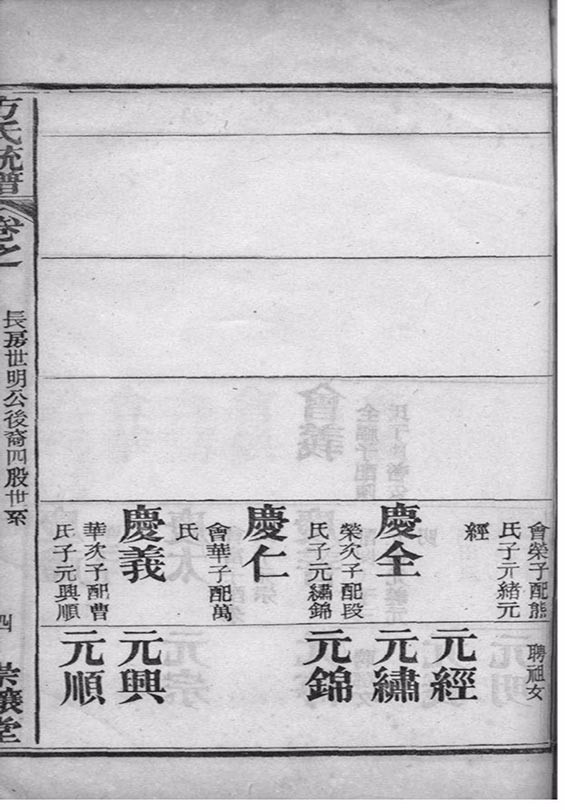 會榮子配熊
氏子元緒元
經
慶全
榮次子配段
氏子元繡錦
慶仁
會華子配萬
氏
慶義
華次子配曹
氏子元興順
聘祖女
元經
元繡
元錦
元興
元順
方氏統譜
卷之
長房世明公後裔四股世系
四
堂